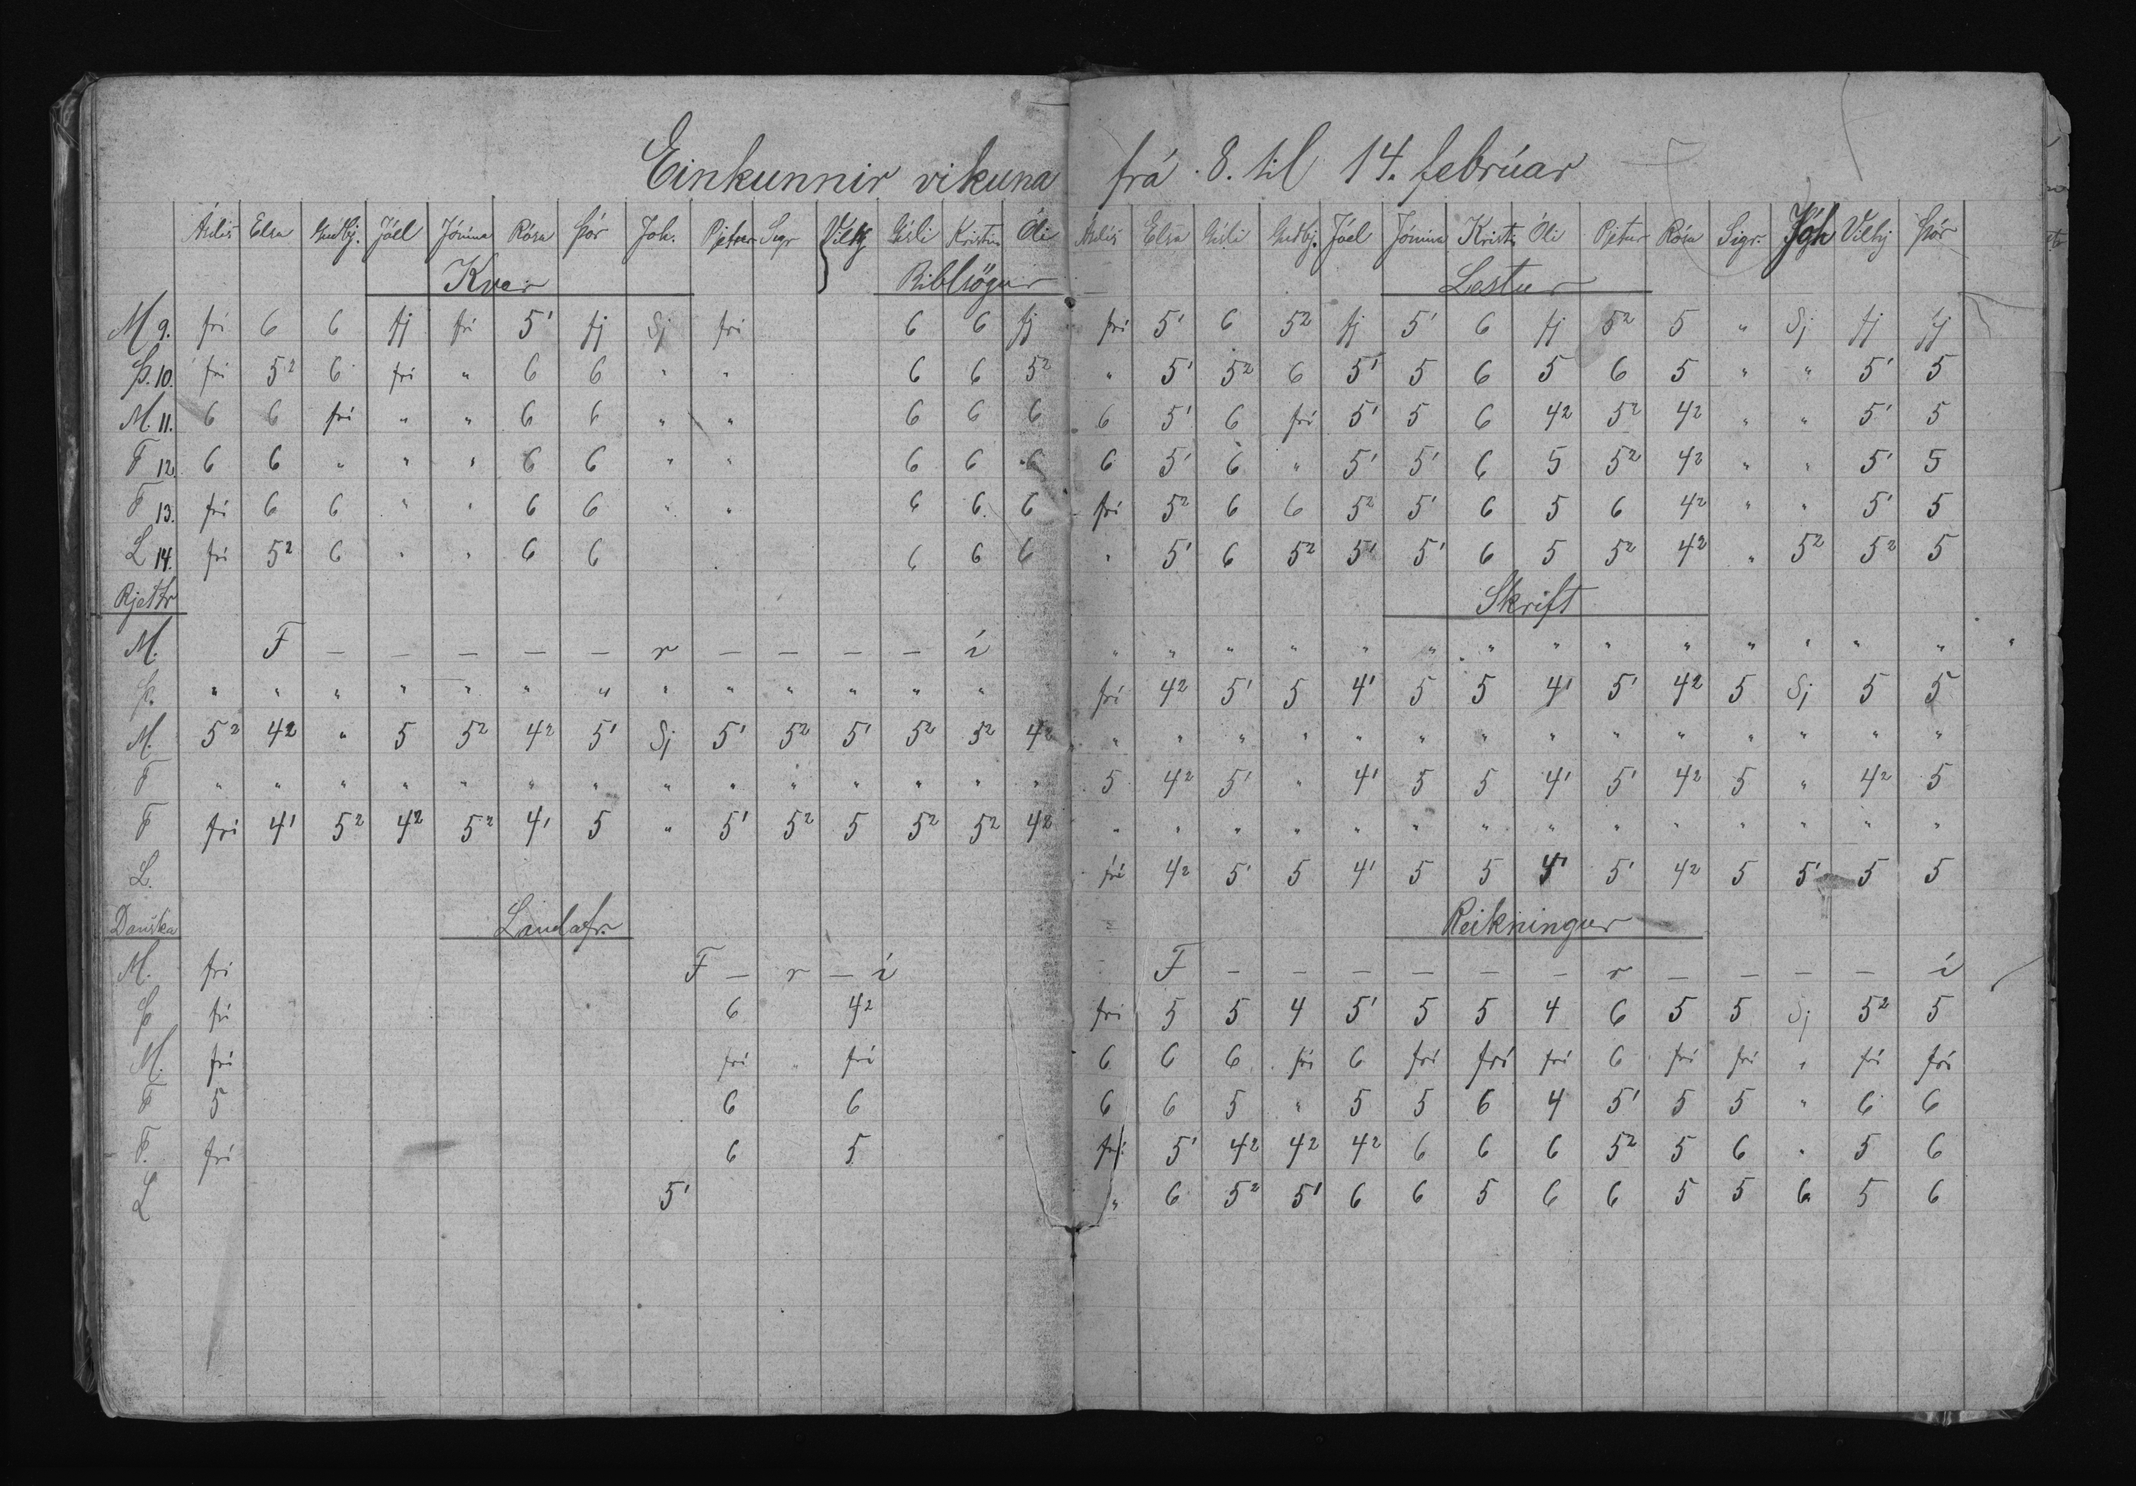 Einkunnir vikuna frá 8. til 14. febrúar
Ásdís Elsa Guðbj. Jóel Jónína Rósa Þór Joh. Pjetur Sigr Vilhj Gísli Kristín Óli
Kver Biblsögur
M 9. frí 6 6 fj frí 5¹ fj Sj frí 6 6 fj
Þ. 10. frí 5² 6 frí " 6 6 " " 6 6 5²
M. 11. 6 6 frí " " 6 6 " " 6 6 6
F 12 6 6 " " " 6 6 " " 6 6 6
F 13. frí 6 6 " " 6 6 " " 6 6 6
L 14. frí 5² 6 " " 6 6 6 6 6
Rjettr
M. F – – – – – r – – – – í
Þ. " " " " " " " " " " " " "
M. 5² 4² " 5 5² 4² 5¹ Sj 5¹ 5² 5¹ 5² 5² 4²
F " " " " " " " " " " " " " "
F frí 4¹ 5² 4² 5² 4¹ 5 " 5¹ 5² 5 5² 5² 4²
L.
Danska Landafr.
M. frí F – r – í
Þ frí 6 4²
M. frí frí " frí
F 5 6 6
F. frí 6 5
L 5¹
Ásdís Elsa Gísli Guðbj. Jóel Jónína Krist. Óli Pjetur Rósa Sigr. Jóh Vilhj Þór
Lestur
frí 5¹ 6 5² fj 5¹ 6 fj 5² 5 " Sj fj fj
" 5¹ 5² 6 5¹ 5 6 5 6 5 " " 5¹ 5
6 5¹ 6 frí 5¹ 5 6 4² 5² 4² " " 5¹ 5
6 5¹ 6 " 5¹ 5¹ 6 5 5² 4² " " 5¹ 5
frí 5² 6 6 5² 5¹ 6 5 6 4² " " 5¹ 5
" 5¹ 6 5² 5¹ 5¹ 6 5 5² 4² " 5² 5² 5
Skrift
" " " " " " " " " " " " " " "
frí 4² 5¹ 5 4¹ 5 5 4¹ 5¹ 4² 5 Sj 5 5
" " " " " " " " " " " " " "
5 4² 5¹ " 4¹ 5 5 4¹ 5¹ 4² 5 " 4² 5
" " " " " " " " " " " " " "
frí 4² 5¹ 5 4¹ 5 5 4¹ 5¹ 4² 5 5¹ 5 5
Reikningur
F – – – – – – r – – – – í
frí 5 5 4 5¹ 5 5 4 6 5 5 Sj 5² 5
6 6 6 frí 6 frí frí frí 6 frí frí " frí frí
6 6 5 " 5 5 6 4 5¹ 5 5 " 6 6
frí 5¹ 4² 4² 4² 6 6 6 5² 5 6 " 5 6
" 6 5² 5¹ 6 6 5 6 6 5 5 6 5 6